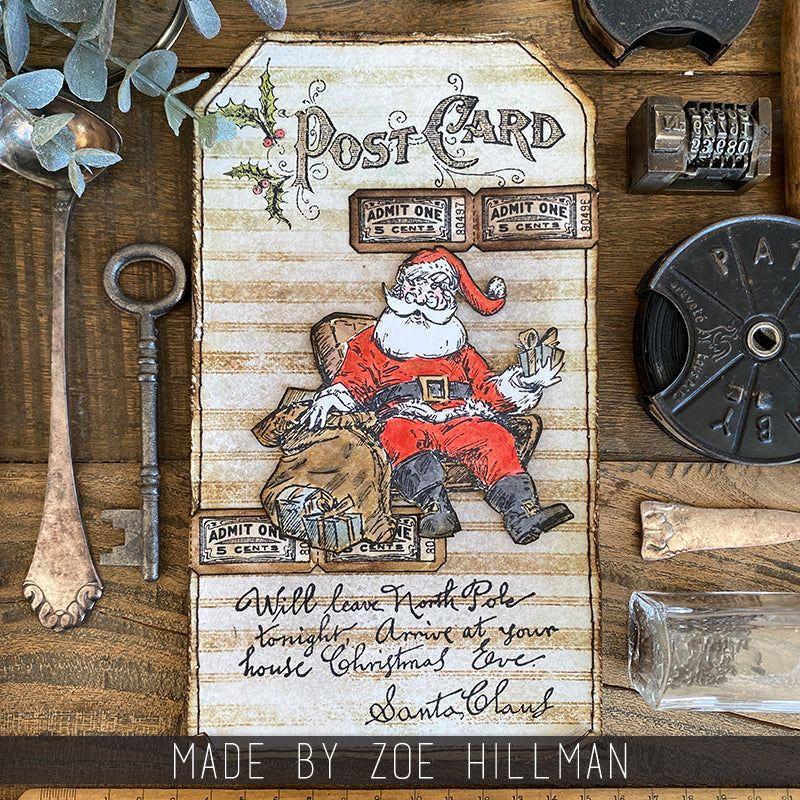 POST CARD
ADMIT ONE
5 CENTS
80497
ADMIT ONE
5 CENTS
80496
ADMIT ONE
5 CENTS
80
5 CENTS
80
Will leave North Pole
tonight. Arrive at your
house Christmas Eve.
Santa Claus
PAT
MADE BY ZOE HILLMAN